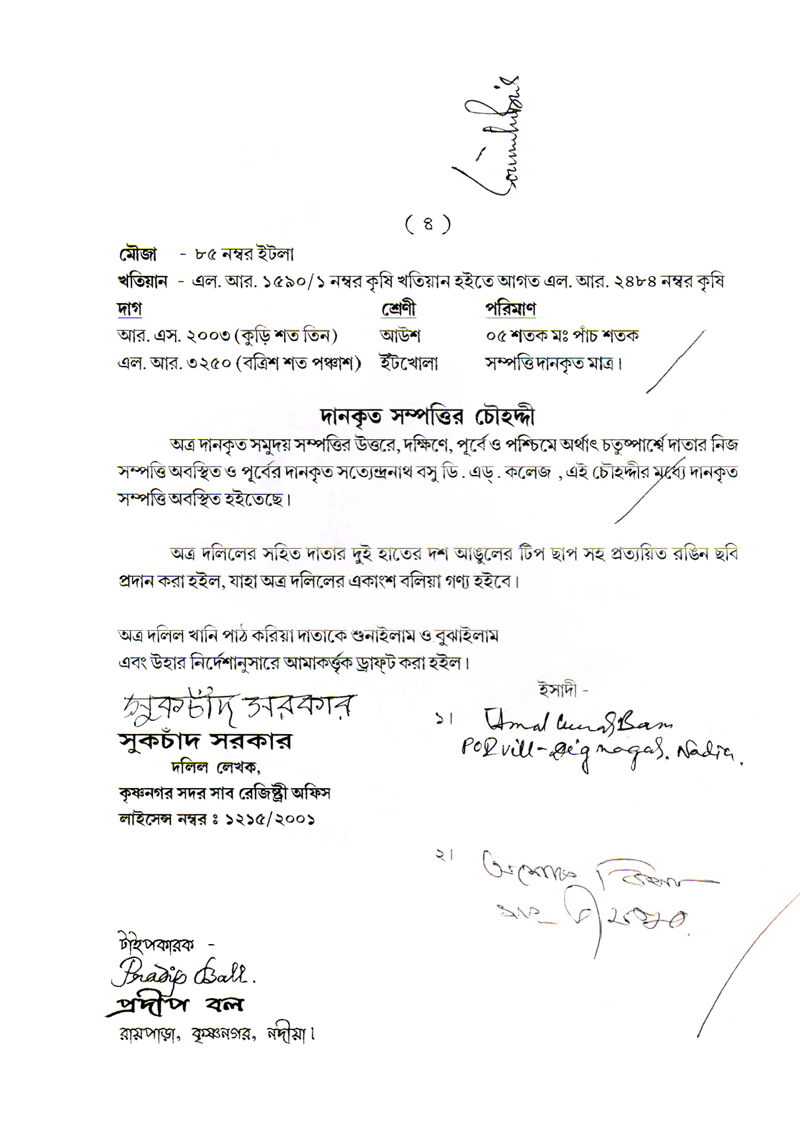 ( ৪ )
মৌজা - ৮৫ নম্বর ইটলা
খতিয়ান - এল. আর. ১৫৯০/১ নম্বর কৃষি খতিয়ান হইতে আগত এল. আর. ২৪৮৪ নম্বর কৃষি
দাগ শ্রেণী পরিমাণ
আর. এস. ২০০৩ (কুড়ি শত তিন) আউশ ০৫ শতক মঃ পাঁচ শতক
এল. আর. ৩২৫০ (বত্রিশ শত পঞ্চাশ) ইঁটখোলা সম্পত্তি দানকৃত মাত্র।
দানকৃত সম্পত্তির চৌহদ্দী
অত্র দানকৃত সমুদয় সম্পত্তির উত্তরে, দক্ষিণে, পূর্বে ও পশ্চিমে অর্থাৎ চতুষ্পার্শ্বে দাতার নিজ
সম্পত্তি অবস্থিত ও পূর্বের দানকৃত সত্যেন্দ্রনাথ বসু ডি . এড্ . কলেজ , এই চৌহদ্দীর মধ্যে দানকৃত
সম্পত্তি অবস্থিত হইতেছে।
অত্র দলিলের সহিত দাতার দুই হাতের দশ আঙুলের টিপ ছাপ সহ প্রত্যয়িত রঙিন ছবি
প্রদান করা হইল, যাহা অত্র দলিলের একাংশ বলিয়া গণ্য হইবে।
অত্র দলিল খানি পাঠ করিয়া দাতাকে শুনাইলাম ও বুঝাইলাম
এবং উহার নির্দেশানুসারে আমাকর্ত্তৃক ড্রাফ্‌ট করা হইল।
ইসাদী -
সুকচাঁদ সরকার
সুকচাঁদ সরকার
দলিল লেখক,
কৃষ্ণনগর সদর সাব রেজিষ্ট্রী অফিস
লাইসেন্স নম্বর ঃ ১২১৫/২০০১
১। Amal
P.O & vill- Dignagar, Nadia.
২।
টাইপকারক -
Pradip Ball.
প্রদীপ বল
রায়পাড়া, কৃষ্ণনগর, নদীয়া।